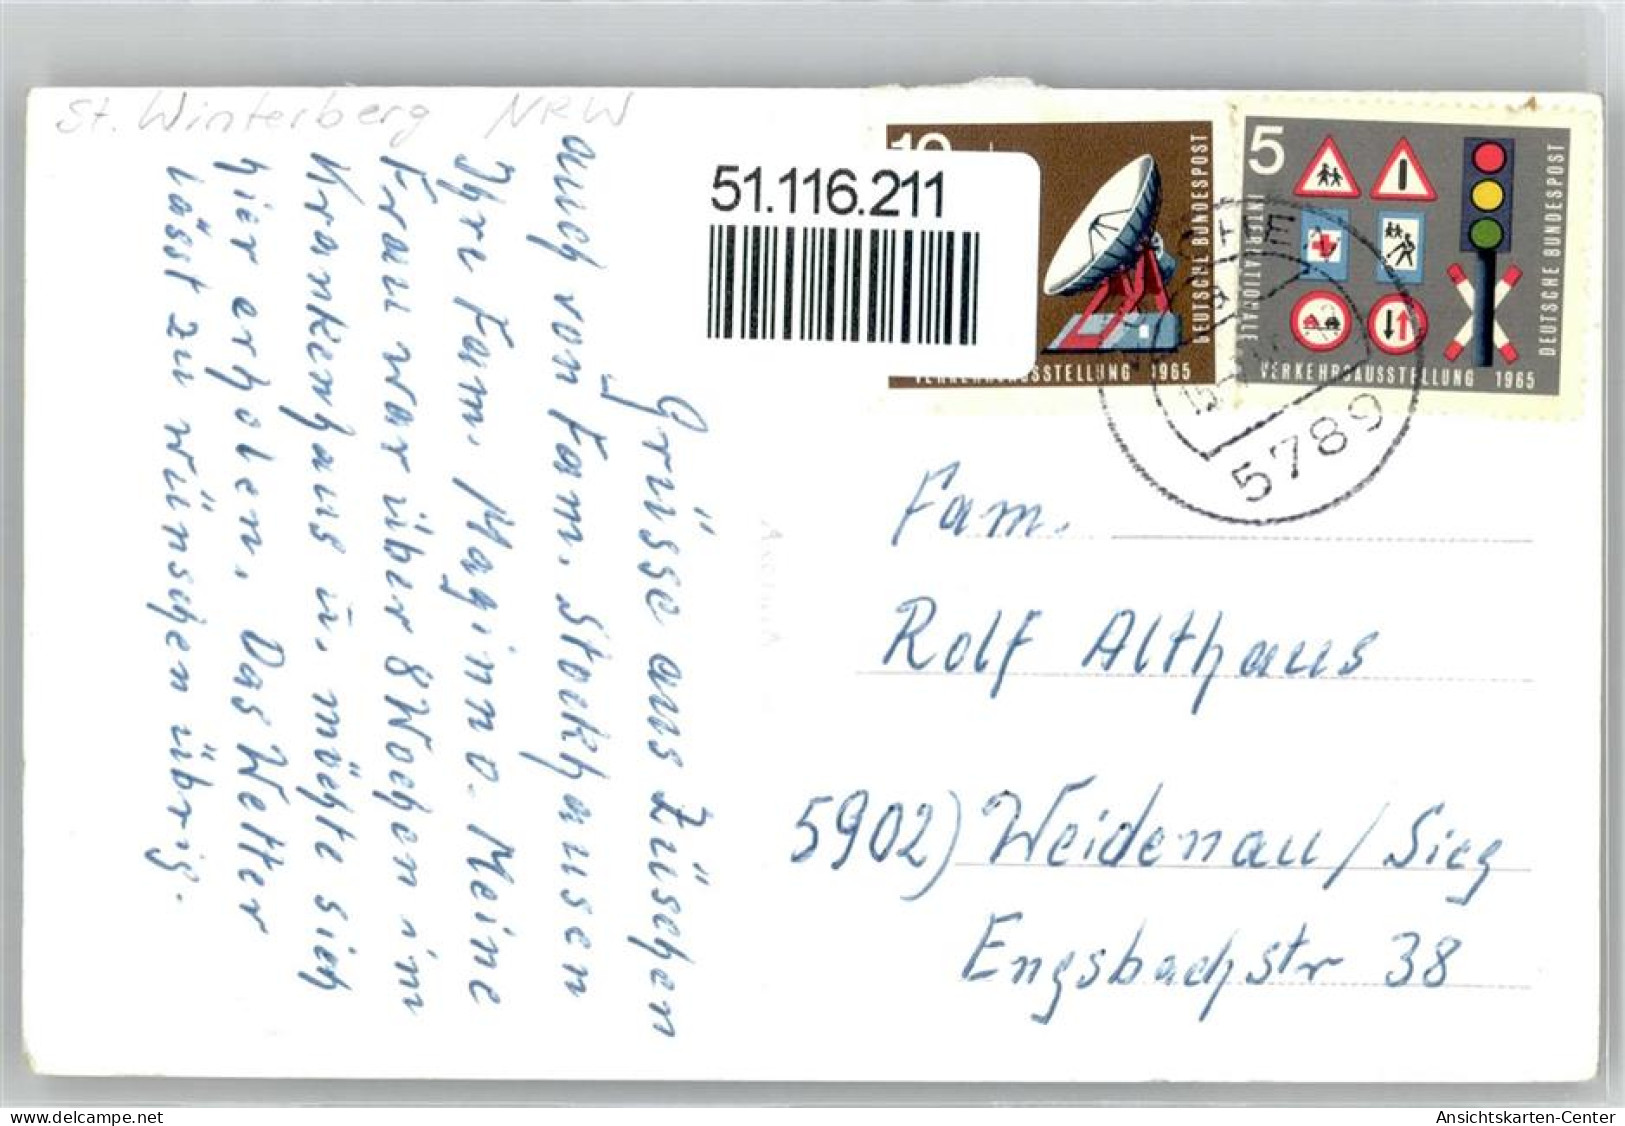 St. Winterberg NRW
Grüsse aus Züschen
auch von Fam. Stockhausen
Ihre Fam. Maginno. Meine
Frau war über 8 Wochen im
Krankenhaus u. möchte sich
hier erholen. Das Wetter
lässt zu wünschen übrig.
51.116.211
10
DEUTSCHE BUNDESPOST
VERKEHRSAUSSTELLUNG 1965
5
INTERNATIONALE
VERKEHRSAUSSTELLUNG 1965
DEUTSCHE BUNDESPOST
5789
Fam.
Rolf Althaus
5902) Weidenau/Sieg
Engsbachstr 38
www.oldthing.net
Ansichtskarten-Center